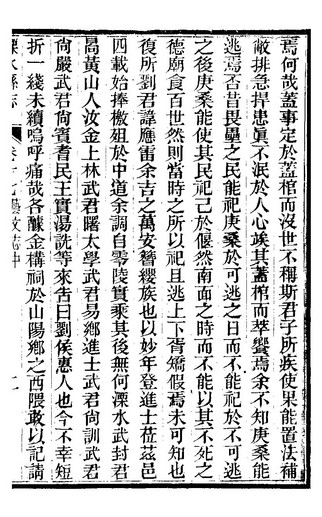 焉何哉蓋事定於蓋棺而沒世不稱斯君子所疾使果能置法補
敝排急捍患眞不泯於人心俟其蓋棺而萃饗焉余不知庚桑能
逃焉否昔畏壘之民能祀庚桑於可逃之日而不能祀於不可逃
之後庚桑能使其民祀己於偃然南面之時而不能以其不死之
德廟食百世然則當時之所以祀且逃上下胥矯假焉未可知也
復所劉君諱應雷余吉之萬安簪纓族也以妙年登進士莅茲邑
四載始捧檄俎於中道余調自零陵實乘其後無何溧水武封君
暠黃山人汝金上林武君曙太學武君易鄉進士武君尙訓武君
尙嚴武君尙賓耆民王實湯詵等來告曰劉侯惠人也今不幸短
折一綫未續嗚呼痛哉各醵金構祠於山陽鄉之西隈敢以記請
溧水縣志
卷十七藝文志中